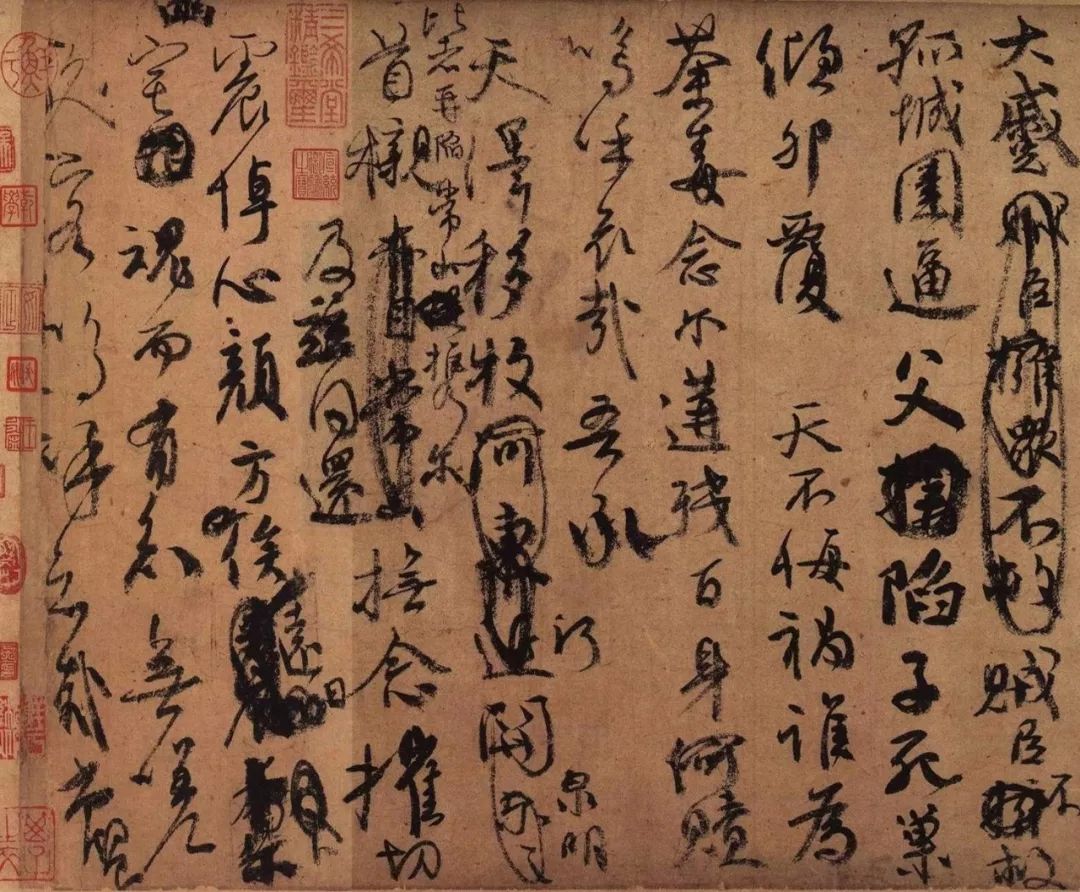 大蹙賊臣擁衆不救賊臣不救
孤城圍逼父陷子死巢
傾卵覆天不悔禍誰為
荼毒念爾遘殘百身何贖
嗚呼哀哉吾承
天澤移牧河東近河關
行
泉明
比者再陷常山攜爾
首櫬常山撫念摧切
及茲同還
震悼心顏方俟
遠日
宅魂而有知無嗟
久客嗚呼哀哉尚饗
三希堂精鑑璽